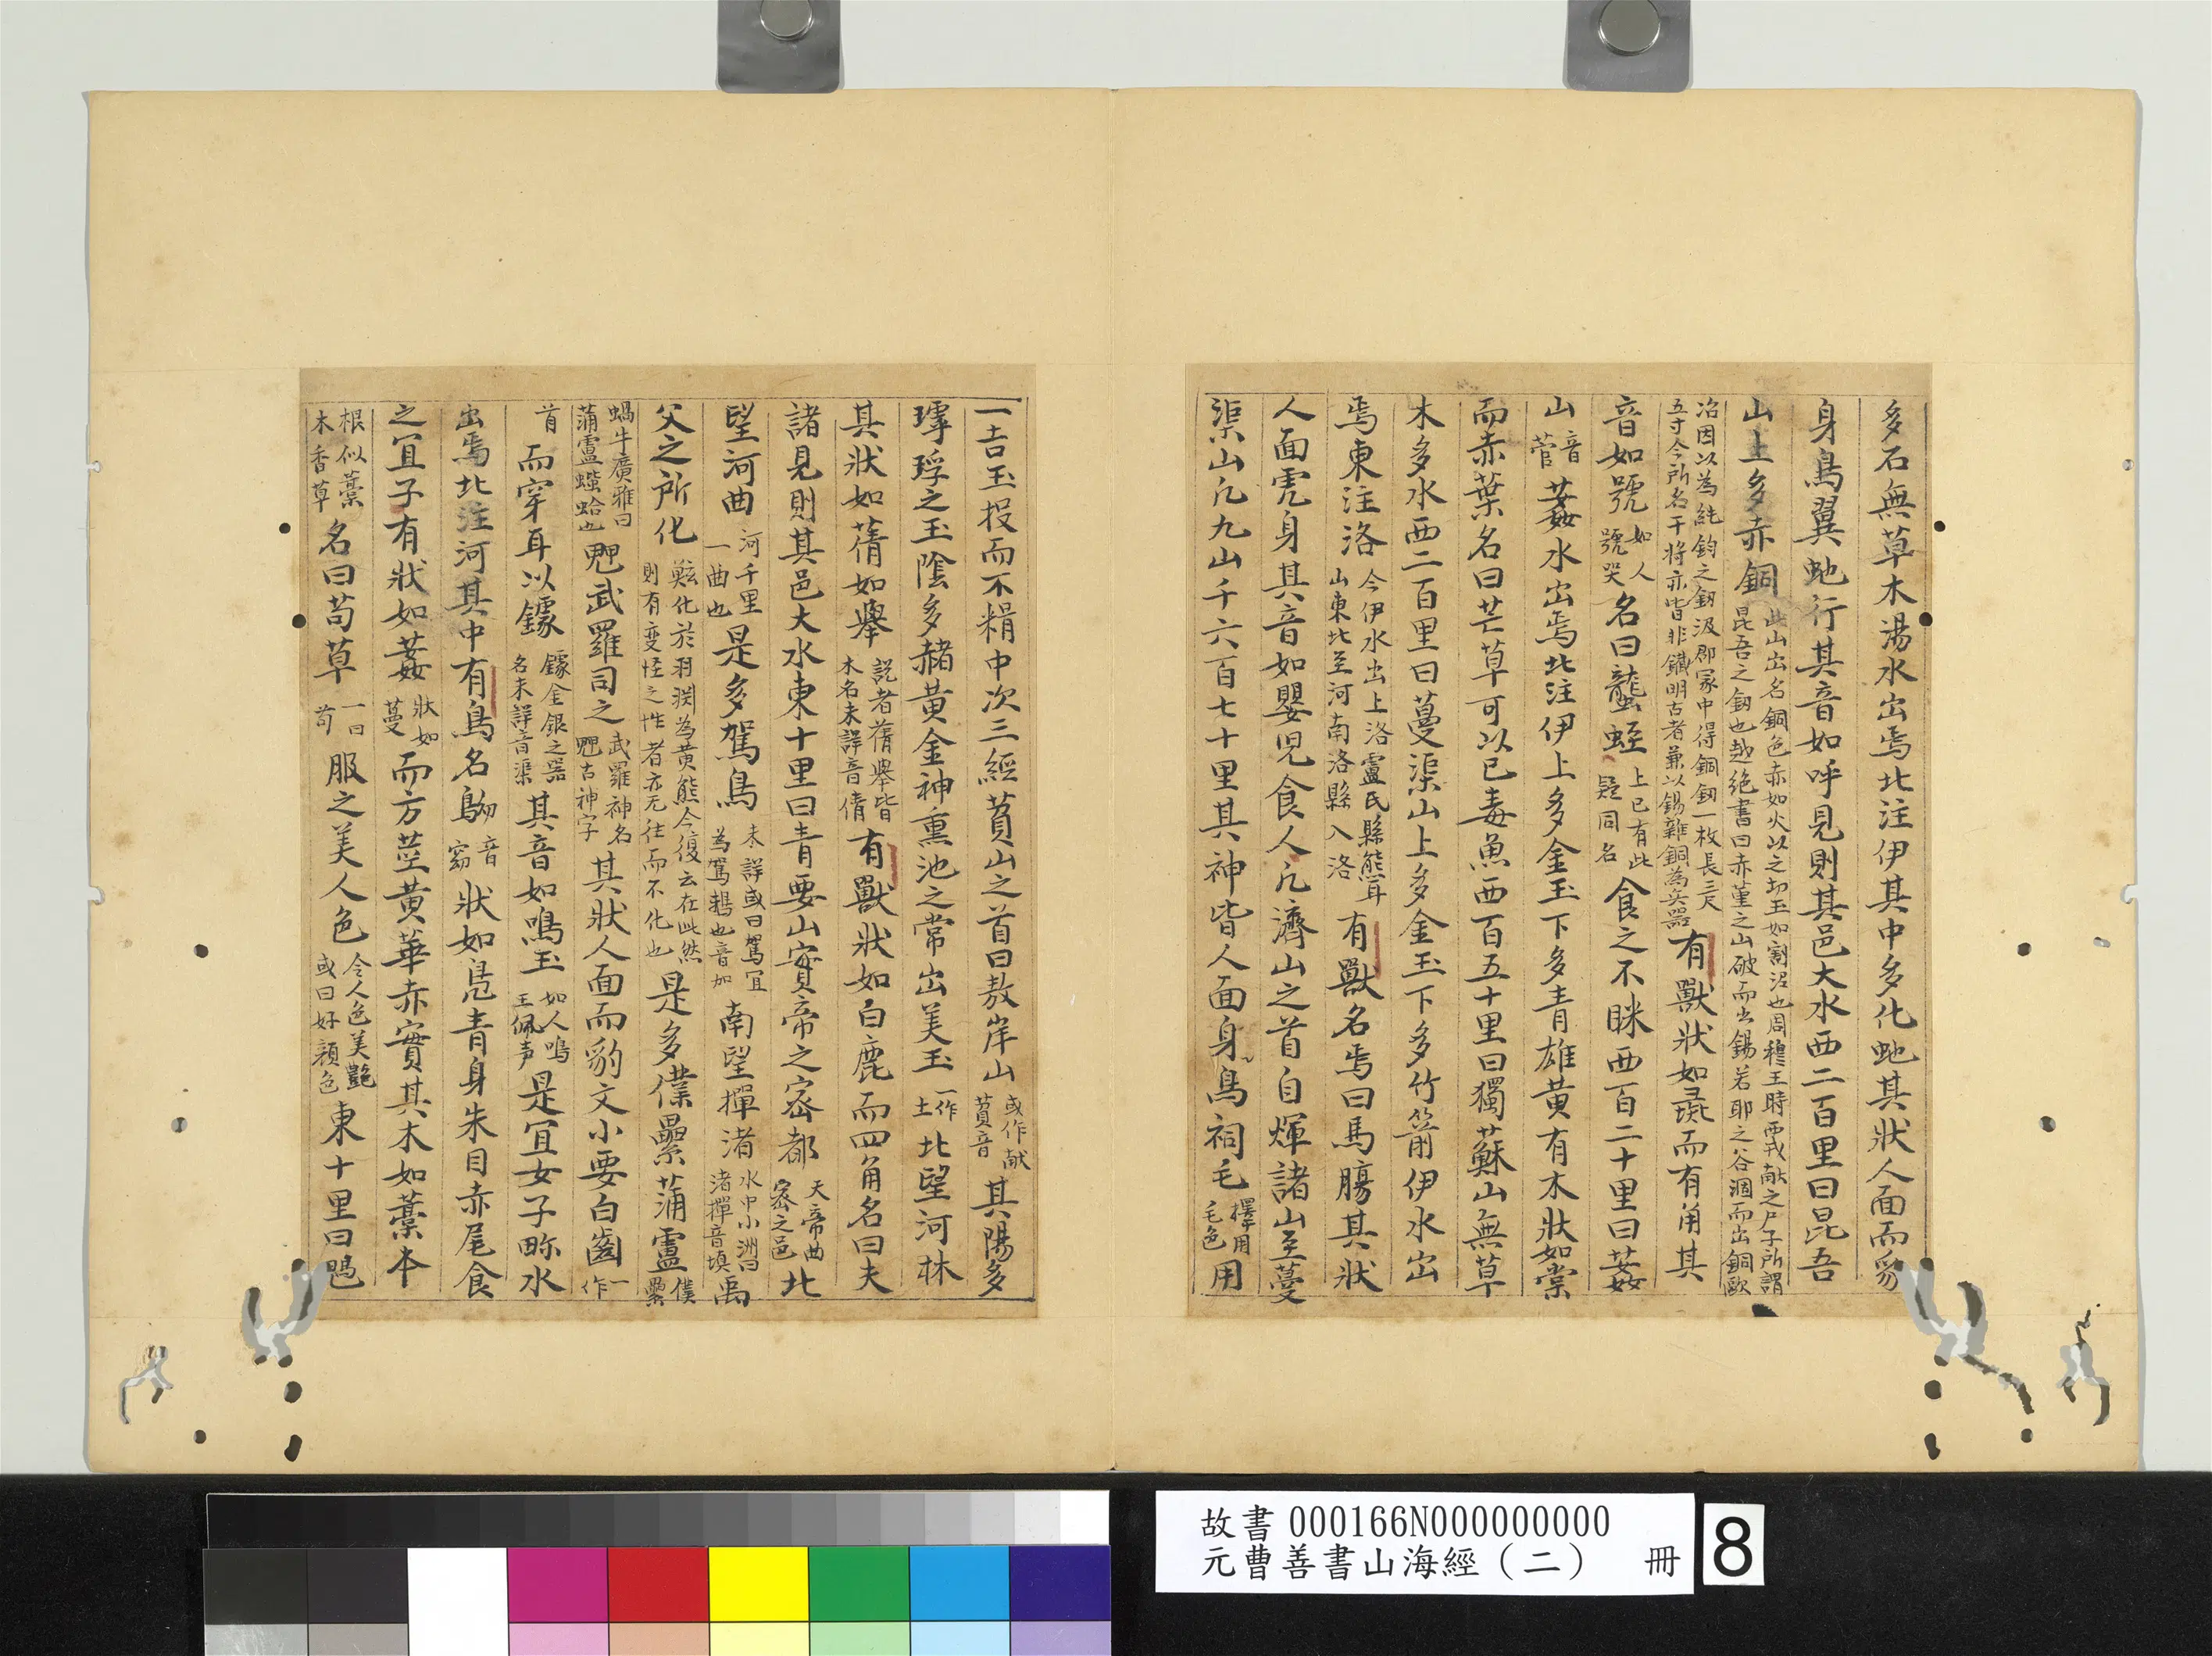 多石無草木湯水出焉北注伊其中多化虵其狀人面而豺
身鳥翼虵行其音如呼見則其邑大水西二百里曰昆吾
山上多赤銅此山出名銅色赤如火以之切玉如割沼也周穆王時西戎献之尸子所謂
昆吾之釰也越絕書曰赤菫之山破而出錫若耶之谷涸而出銅歐
冶因以為純鈞之釰汲郡冢中得銅釰一枚長三尺
五寸今所名干將亦皆非鐵明古者兼以錫雜銅為兵器有獸狀如彘而有角其
音如號如人號哭名曰蠪蛭上已有此疑同名食之不眯西百二十里曰葌
山音菅葌水出焉北注伊上多金玉下多青雄黃有木狀如棠
而赤葉名曰芒草可以已毒魚西百五十里曰獨蘇山無草
木多水西二百里曰蔓渠山上多金玉下多竹箭伊水出
焉東注洛今伊水出上洛盧氏縣熊耳山東北至河南洛縣入洛有獸名焉曰馬腸其狀
人面虎身其音如嬰児食人凡濟山之首自煇諸山至蔓
渠山凡九山千六百七十里其神皆人面身鳥祠毛擇用毛色用
一吉玉投而不糈中次三經萯山之首曰敖岸山或作献萯音其陽多
㻬琈之玉陰多赭黃金神熏池之常出美玉一作土北望河林
其狀如蒨如舉說者蒨舉皆木名未詳音倩有獸狀如白鹿而四角名曰夫
諸見則其邑大水東十里曰青要山實帝之密都天帝曲密之邑北
望河曲河千里一曲也是多駕鳥未詳或曰駕宜為駕鵝也音加南望墠渚水中小洲曰渚墠音填禹
父之所化鮌化於羽渕為黃熊今復云在此然則有変怪之性者亦无往而不化也是多僕纍蒲盧僕纍
蝸牛廣雅曰蒲盧蜌蛤也䰠武羅司之武羅神名䰠古神字其狀人面而豹文小要白齒一作
首而穿耳以鐻鐻金銀之器名未詳音渠其音如鳴玉如人鳴玉佩声是宜女子畛水
出焉北注河其中有鳥名鴢音窈狀如鳧青身朱目赤尾食
之宜子有狀如葌狀如蔓而方莖黃華赤實其木如藁本
根似藁木香草名曰苟草一曰苟服之美人色令人色美艷或曰好顔色東十里曰騩
故書 000166N000000000
元曹善書山海經（二） 冊 8